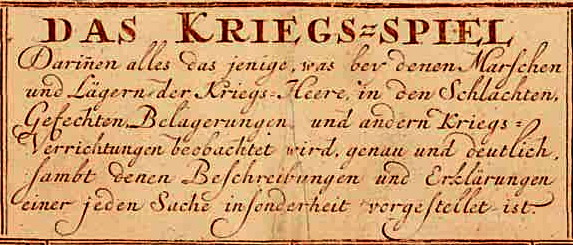 DAS KRIEGS=SPIEL
Dariñen alles das jenige, was bey denen Marschen
und Lägern der Kriegs=Heere, in den Schlachten,
Gefechten, Belagerungen, und andern Kriegs=
Verrichtungen beobachtet wird, genau und deutlich,
sambt denen Beschreibungen und Erklärungen
einer jeden Sache insonderheit vorgestellet ist.